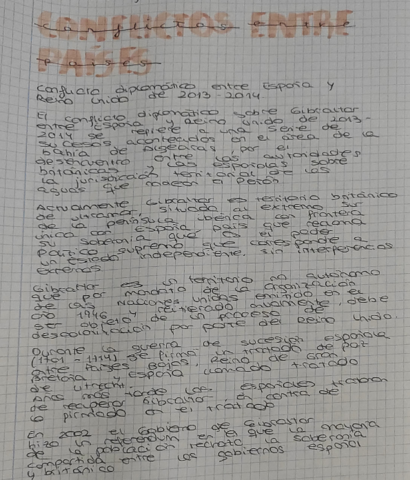 CONFLICTOS ENTRE
PAÍSES
Conflicto diplomático entre España y
Reino Unido de 2013-2014
El conflicto diplomático sobre Gibraltar
entre España y Reino Unido de 2013-
2014 se refiere a una serie de
sucesos acontecidos en el área de la
bahía de Algeciras, por el
desencuentro entre las autoridades
británicas y las españolas sobre
la jurisdicción territorial de las
aguas que rodean el Peñón
Actualmente Gibraltar es territorio británico
de ultramar, situado al extremo sur
de la península ibérica con frontera
única con España país que reclama
su soberanía que es el poder
político supremo que corresponde a
un estado independiente, sin interferencias
externas
Gibraltar es un territorio no autónomo
que por mandato de la Organización
de las Naciones Unidas emitido en el
año 1946 y reiterado anualmente, debe
ser objeto de un proceso de
descolonización por parte del Reino Unido
Durante la guerra de sucesión española
(1701-1714) se firmó un tratado de paz
entre Países Bajos, Reino de Gran
Bretaña y España llamado tratado
de Utrecht.
Años más tarde los españoles trataron
de recuperar Gibraltar en contra de
lo pirmdado en el tratado
En 2002 el Gobierno de Gibraltar
hizo un referendum en el que la mayoría
de la población rechazó la soberanía
compartida entre los gobiernos español
y británico